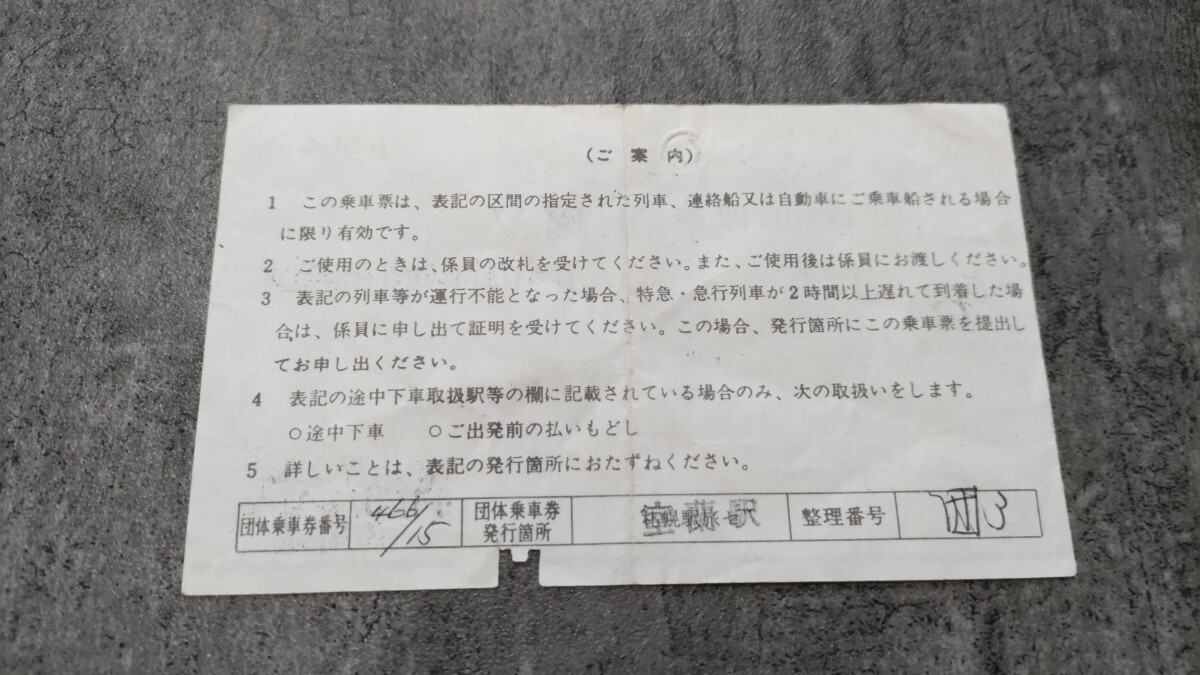 (ご 案 内)
1 この乗車票は、表記の区間の指定された列車、連絡船又は自動車にご乗車船される場合
に限り有効です。
2 ご使用のときは、係員の改札を受けてください。また、ご使用後は係員にお渡しください。
3 表記の列車等が運行不能となった場合、特急・急行列車が2時間以上遅れて到着した場
合は、係員に申し出て証明を受けてください。この場合、発行箇所にこの乗車票を提出し
てお申し出ください。
4 表記の途中下車取扱駅等の欄に記載されている場合のみ、次の取扱いをします。
○途中下車 ○ご出発前の払いもどし
5 詳しいことは、表記の発行箇所におたずねください。
団体乗車券番号 466/15 団体乗車券発行箇所 整理番号 3